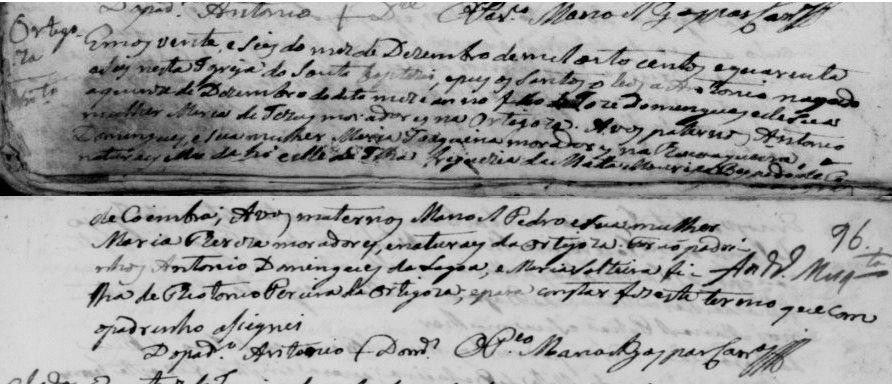 Do pad.º Antonio + D.es O Par.º Manoel Gaspar
Ortego-
za
Em os vinte, e seis do mez de Dezembro de mil oito centos e quarenta
e seis nesta Igreja do Souto baptizei, e puz os Santos oleos a Antonio nascido
a quinze de Dezembro do dito mez e anno filho de Jozé Domingues e de sua
mulher Maria de Jezus moradores na Ortigoza. Avos paternos Antonio
Domingues e sua mulher Maria Joaquina moradores na
naturaes elle e ella de freguezia da Bispado de
de Coimbra; Avos maternos Manoel Pedro e sua mulher
Maria Pereira moradores, e naturaes da Ortigoza. Forão padri-
nhos Antonio Domingues da Lagoa, e Maria Solteira fi-
lha de Theotonio Pereira da Ortigoza, e para constar fiz este termo que com
o padrinho asignei
Do pad.º Antonio + Dom.es O P.co Manoel Gaspar
96